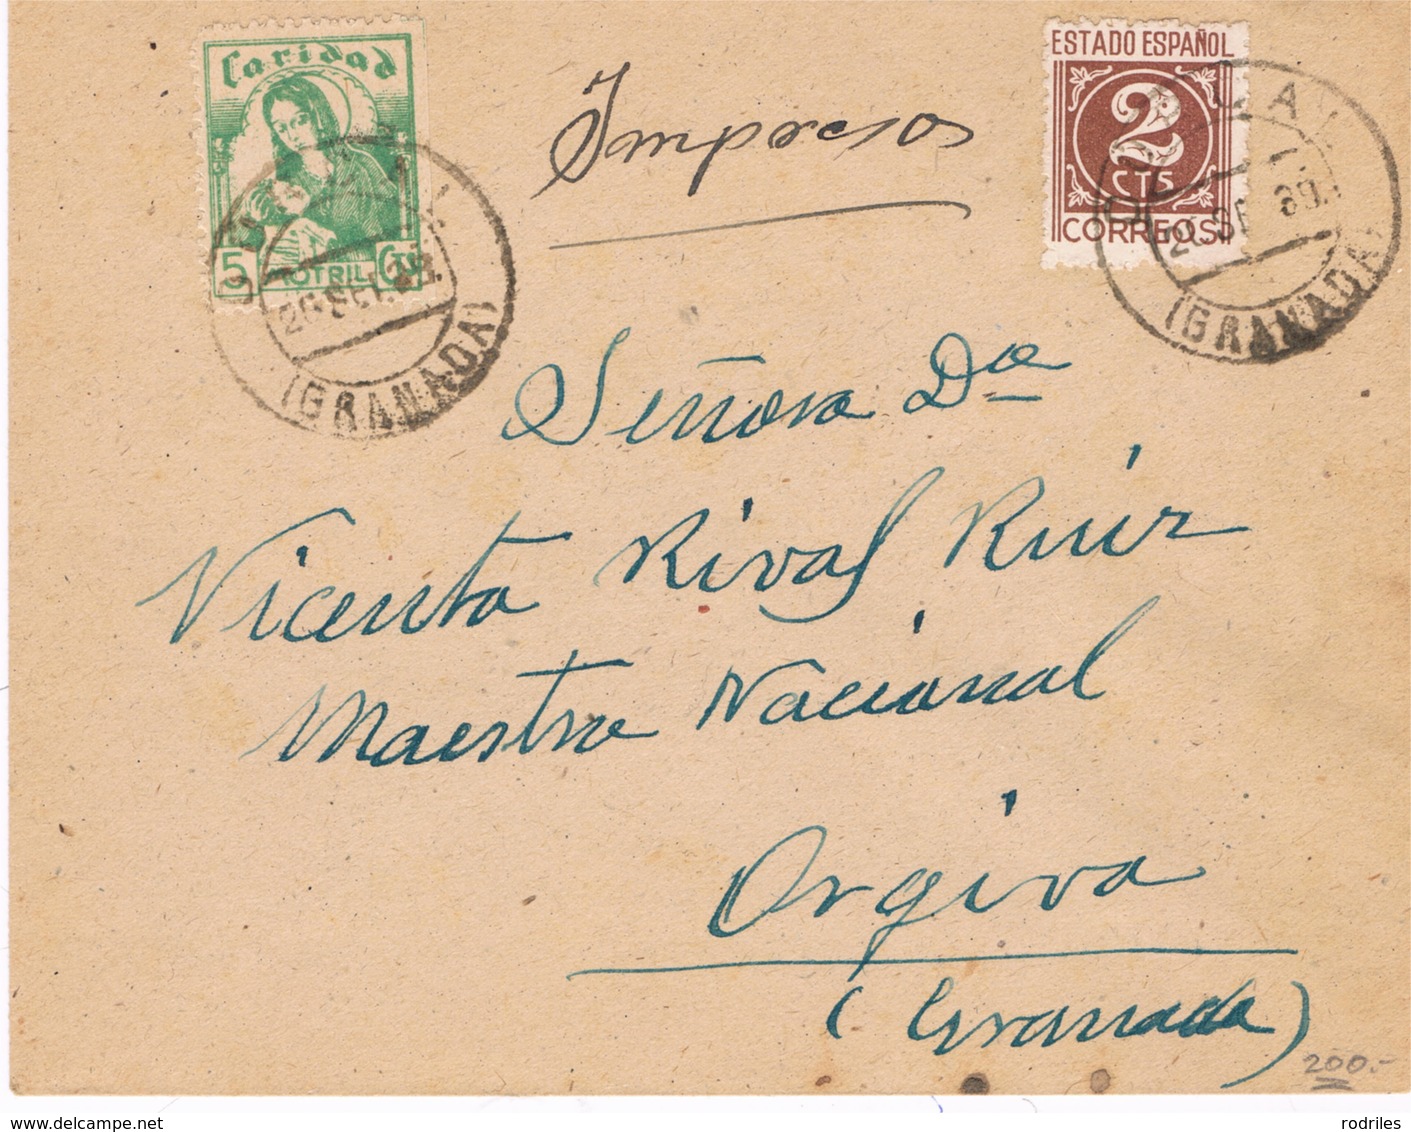 Caridad
5 MOTRIL Cts
(GRANADA)
Impresos
ESTADO ESPAÑOL
2
CTS
CORREOS
(GRANADA)
Señora Dª
Vicenta Rival Ruiz
Maestra Nacional
Orgiva
(Granada)
200.-
rodriles